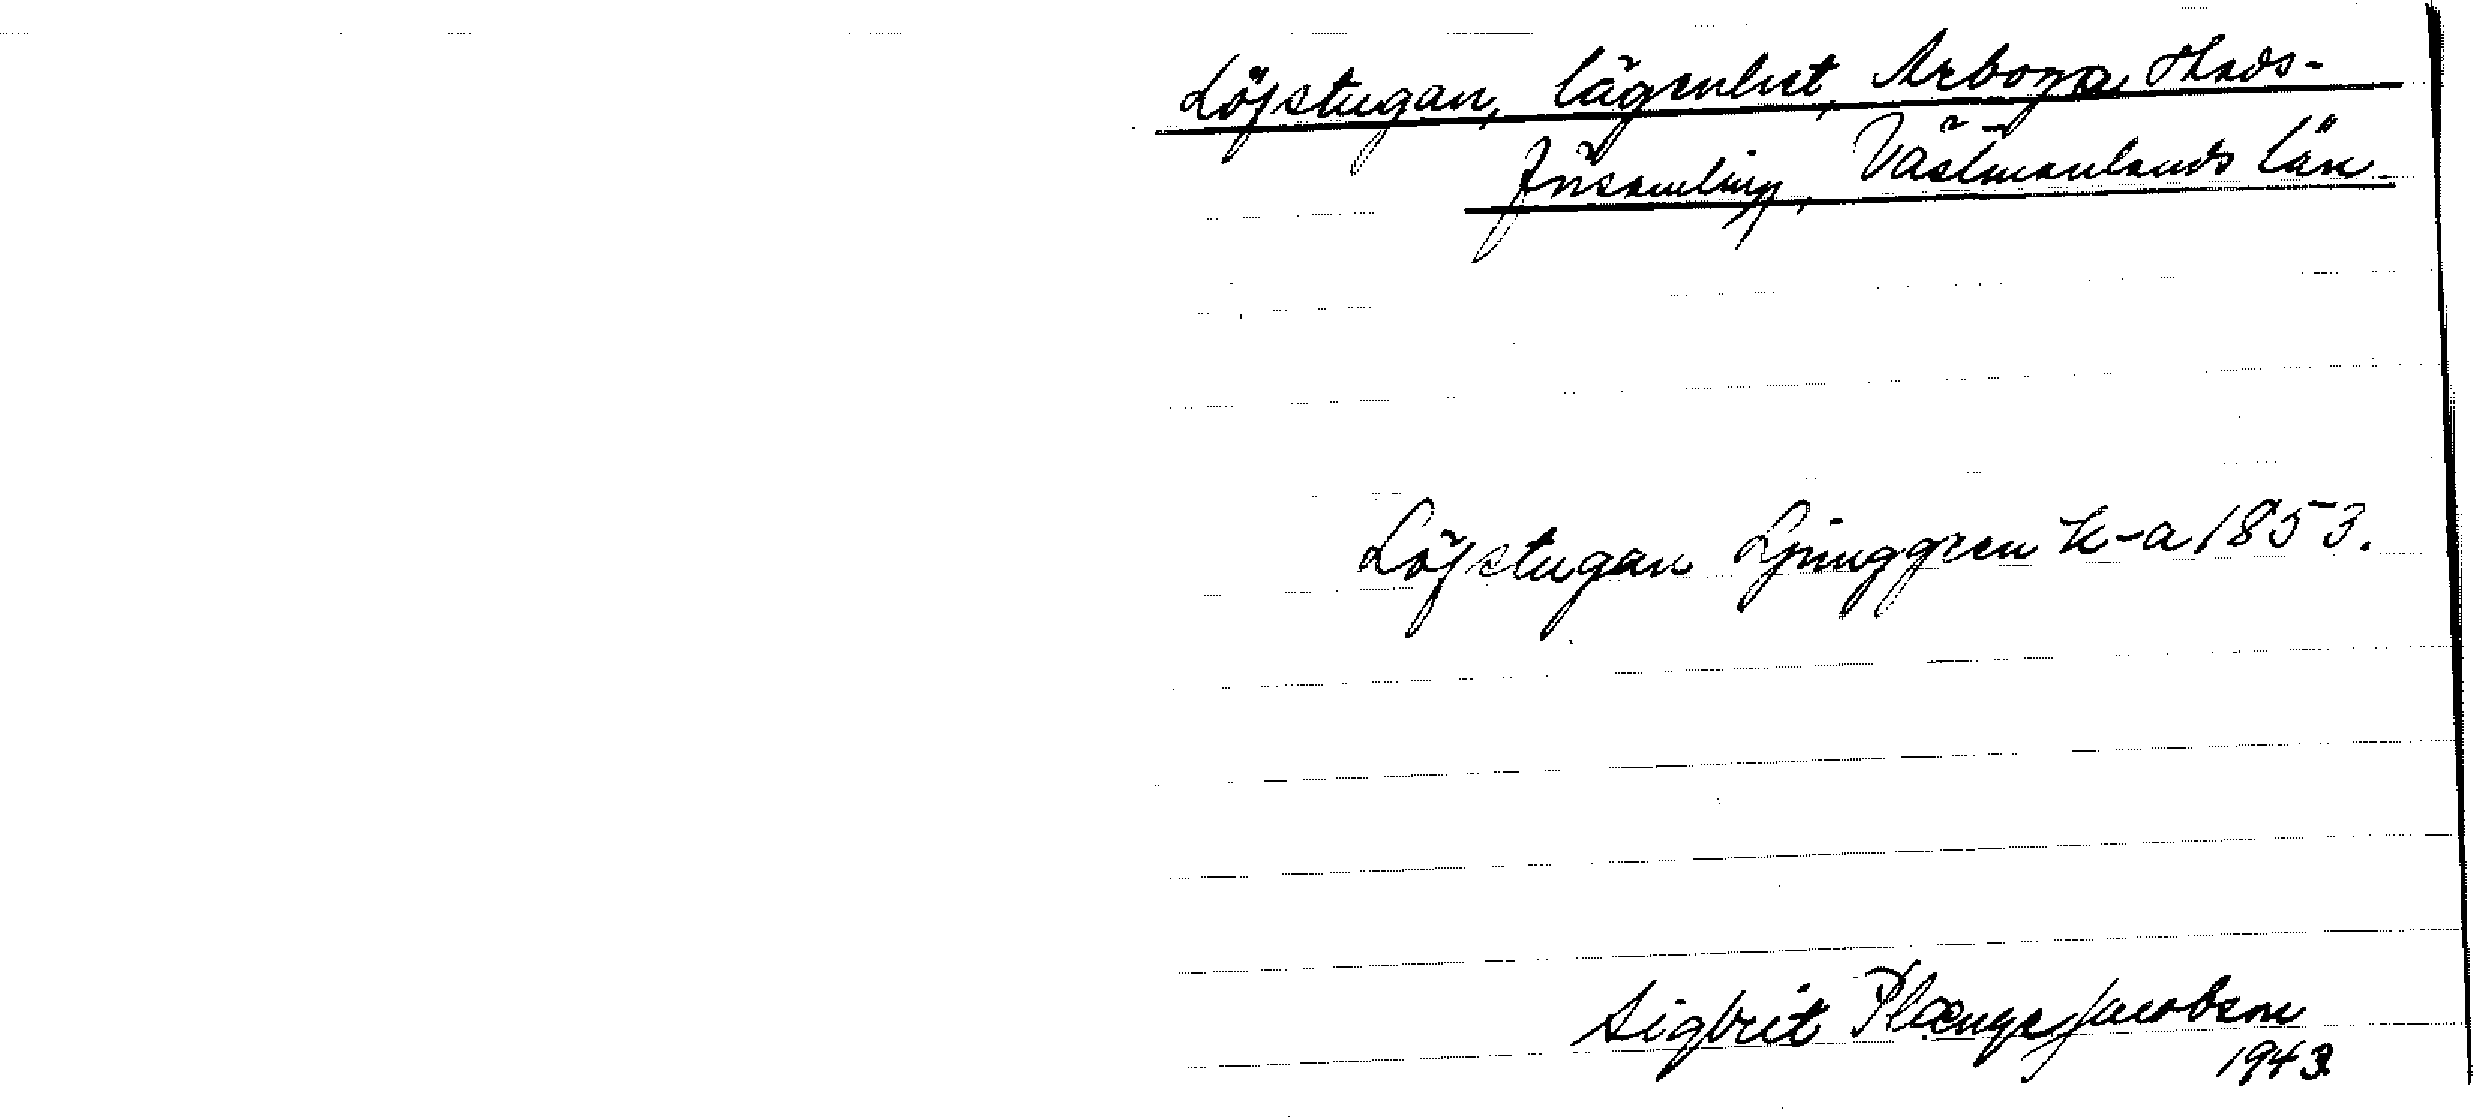 Löfstugan, lägenhet, Arboga Stads-
församling, Västmanlands län.
Löfstugan Ljunggren k-a 1853.
Sigbrit Plænge Jacobson
1943